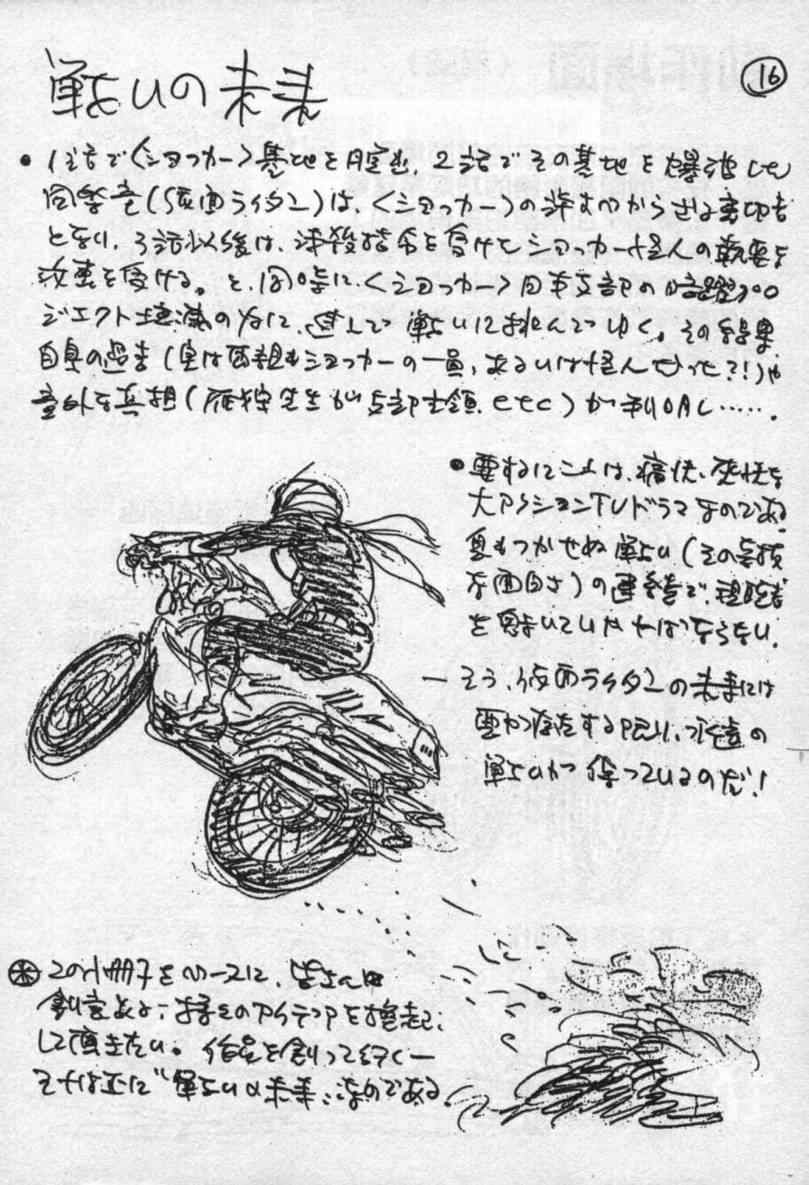 16
戦いの未来
• 1話で〈ショッカー〉基地を脱出、2話でその基地を爆破した
(仮面ライダー)は、〈ショッカー〉の
となり、3話以後は、抹殺指令を受けてショッカー怪人の執要な
攻撃を受ける。と、同時に、〈ショッカー〉日本支部の暗躍プロ
ジェクト壊滅の為に、進んで戦いに挑んでゆく。その結果
自身の過去(実は両親もショッカーの一員、あるいは怪人だった?!)や
意外な真相(先生が支部首領.etc)が判明し……。
• 要するにこれは、痛快、な
大アクションTVドラマなのである
息もつかせぬ戦い(その
な面白さ)の連続で、視聴者
を魅いていかねばならない。
— そう、仮面ライダーの未来には
悪が存在する限り、永遠の
戦いが待っているのだ!
※ この小冊子をベースに、皆さんの
創意ある、のアイデアを
して頂きたい。作品を創って行く—
それは正に"戦いの未来"なのである。